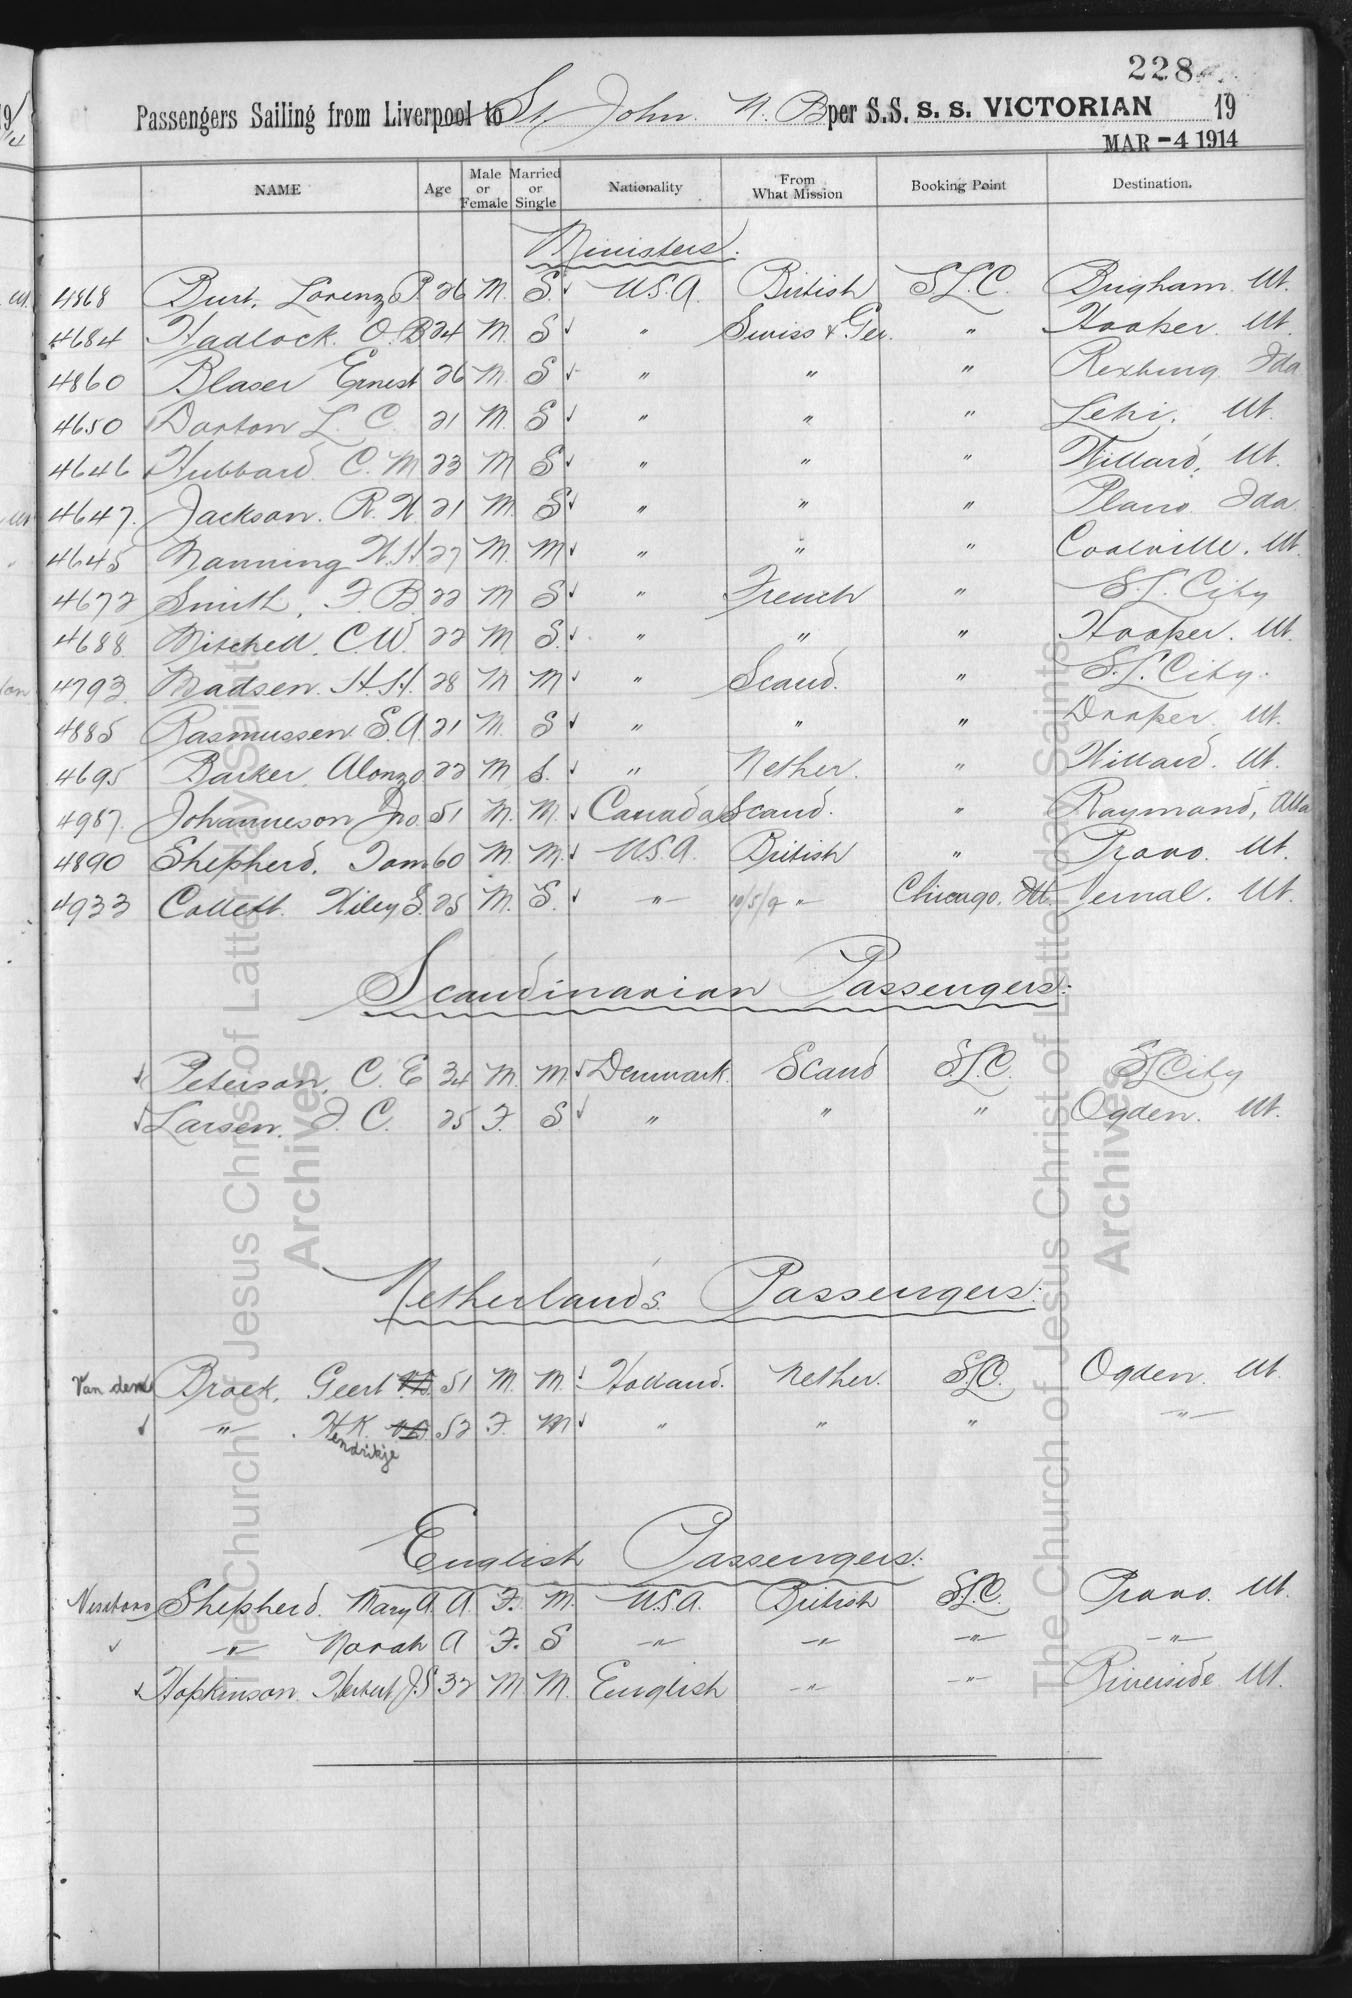 228
Passengers Sailing from Liverpool to St John. N. B per S.S. S. S. VICTORIAN 19
MAR - 4 1914
NAME Age Male or Female Married or Single Nationality From What Mission Booking Point Destination.
Ministers.
4868 Burt, Lorenzo P. 26 M. S. ✓ U.S.A. British S.L.C. Brigham. Ut.
4684 Hadlock. O. B 24 M. S ✓ " Swiss & Ger. " Hooper. Ut.
4860 Blaser Ernest 26 M. S ✓ " " " Rexburg Ida
4650 Dorton L. C. 21 M. S ✓ " " " Lehi. Ut.
4646 Hubbard C. M 23 M S ✓ " " " Willard. Ut.
4647. Jackson. R. H. 21 M. S ✓ " " " Plano Ida
4645 Manning H. H 27 M. M ✓ " " " Coalville. Ut.
4672 Smith, F. B. 22 M S ✓ " French " S. L. City
4688. Mitchell. C. W. 22 M S. ✓ " " " Hooper. Ut.
4793. Madsen. H. H. 28 M M ✓ " Scand. " S. L. City.
4885 Rasmussen S. A. 21 M. S ✓ " " " Draper Ut.
4695 Barker, Alonzo 22 M S. ✓ " Nether. " Willard. Ut.
4987. Johanneson Jno. 51 M. M. ✓ Canada Scand. " Raymond, Alta
4890 Shepherd. Tom 60 M. M. ✓ U.S.A. British " Provo. Ut.
4933 Collett. Wiley S. 25 M. S. ✓ " " Chicago. Ill. Vernal. Ut.
Scandinavian Passengers:
✓ Peterson, C. E 34 M. M ✓ Denmark. Scand S.L.C. S L City
✓ Larsen. J. C. 25 F. S ✓ " " " Ogden. Ut.
Netherlands Passengers:
Van den Broek, Geert 51 M. M. ✓ Holland. Nether. S.L.C. Ogden. Ut.
✓ " H. K. 52 F. M ✓ " " " "
Hendrikje
English Passengers:
Visitors Shepherd. Mary A. A. F. M. U.S.A. British S.L.C. Provo. Ut.
✓ " Norah A F. S " " " "
✓ Hopkinson. Herbert J. S 32 M. M. English " " Riverside Ut.
The Church of Jesus Christ of Latter-day Saints
Archives
The Church of Jesus Christ of Latter-day Saints
Archives